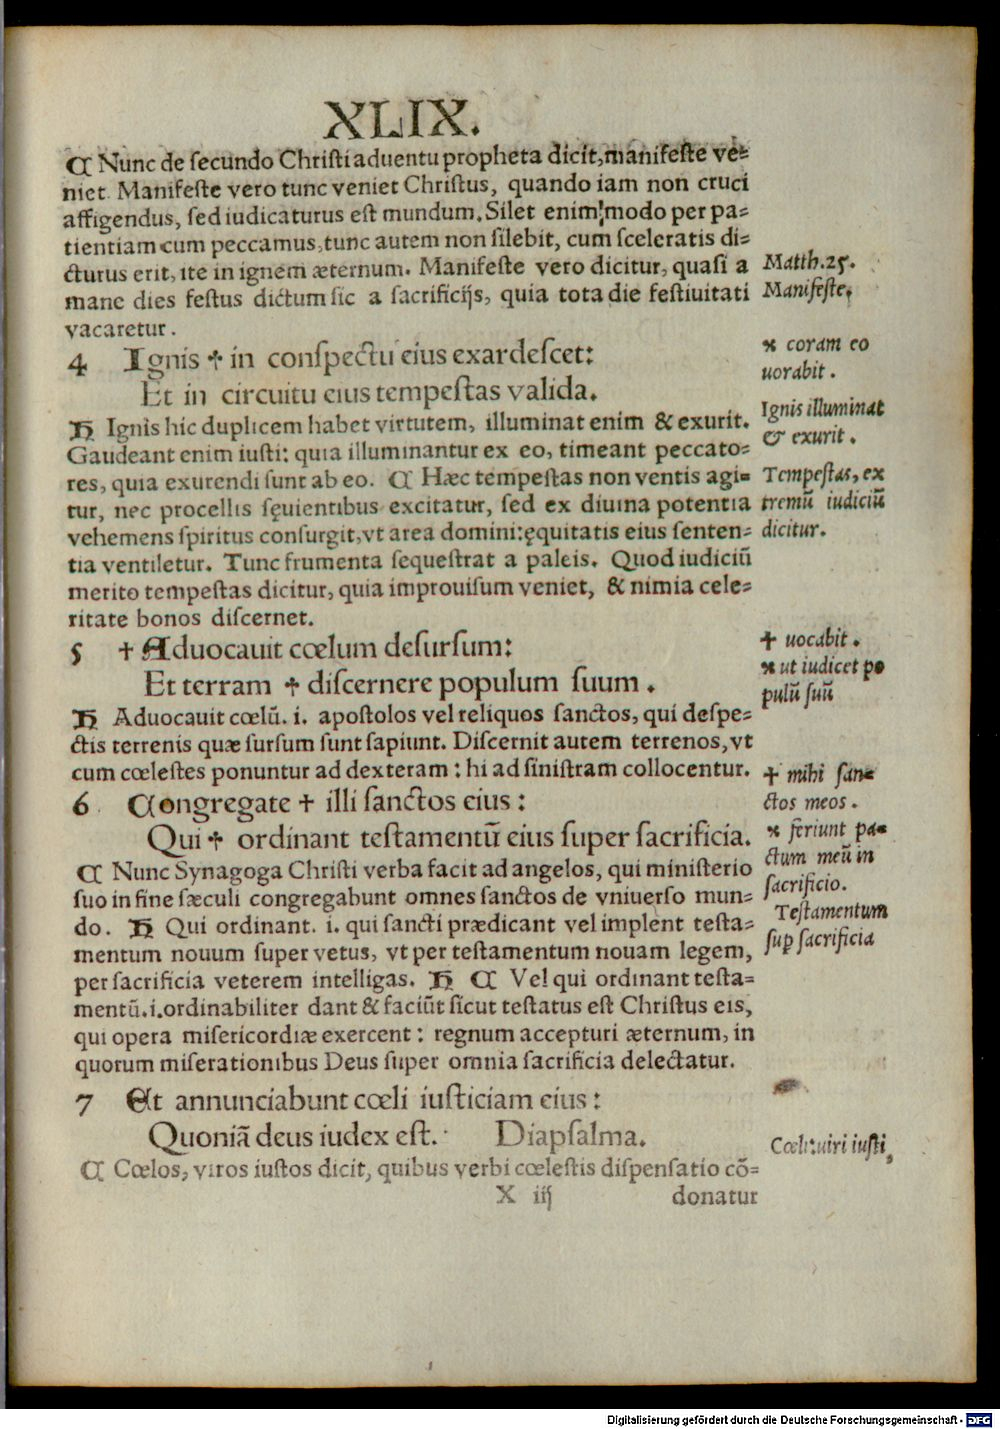 XLIX.
¶ Nunc de secundo Christi aduentu propheta dicit, manifeste ve=
niet. Manifeste vero tunc veniet Christus, quando iam non cruci
affigendus, sed iudicaturus est mundum. Silet enim modo per pa=
tientiam cum peccamus, tunc autem non silebit, cum sceleratis di=
cturus erit, ite in ignem æternum. Manifeste vero dicitur, quasi a
Matth.25.
mane dies festus dictum sic a sacrificijs, quia tota die festiuitati
Manifeste.
vacaretur.
4 Ignis ✢ in conspectu eius exardescet:
ꝶ coram eo
uorabit.
Et in circuitu eius tempestas valida.
Ignis illuminat
H Ignis hic duplicem habet virtutem, illuminat enim & exurit.
& exurit.
Gaudeant enim iusti: quia illuminantur ex eo, timeant peccato=
res, quia exurendi sunt ab eo. ¶ Hæc tempestas non ventis agi=
Tempestas, ex
tur, nec procellis sęuientibus excitatur, sed ex diuina potentia
tremũ iudiciũ
vehemens spiritus consurgit, vt area domini: ęquitatis eius senten=
dicitur.
tia ventiletur. Tunc frumenta sequestrat a paleis. Quod iudiciũ
merito tempestas dicitur, quia improuisum veniet, & nimia cele=
ritate bonos discernet.
5 ✢ Aduocauit cœlum desursum:
✢ uocabit.
ꝶ ut iudicet po
Et terram ✢ discernere populum suum.
pulũ suũ
H Aduocauit cœlũ. i. apostolos vel reliquos sanctos, qui despe=
ctis terrenis quæ sursum sunt sapiunt. Discernit autem terrenos, vt
cum cœlestes ponuntur ad dexteram: hi ad sinistram collocentur.
✢ mihi san=
6 Congregate ✢ illi sanctos eius:
ctos meos.
Qui ✢ ordinant testamentũ eius super sacrificia.
ꝶ feriunt pa=
ctum meũ in
¶ Nunc Synagoga Christi verba facit ad angelos, qui ministerio
sacrificio.
suo in fine sæculi congregabunt omnes sanctos de vniuerso mun=
Testamentum
do. H Qui ordinant. i. qui sancti prædicant vel implent testa=
sup sacrificia
mentum nouum super vetus, vt per testamentum nouam legem,
per sacrificia veterem intelligas. H ¶ Vel qui ordinant testa=
mentũ. i. ordinabiliter dant & faciũt sicut testatus est Christus eis,
qui opera misericordiæ exercent: regnum accepturi æternum, in
quorum miserationibus Deus super omnia sacrificia delectatur.
7 Et annunciabunt cœli iusticiam eius:
Quoniã deus iudex est. Diapsalma.
Cœli: uiri iusti,
¶ Cœlos, viros iustos dicit, quibus verbi cœlestis dispensatio cõ=
X iij donatur
Digitalisierung gefördert durch die Deutsche Forschungsgemeinschaft - DFG